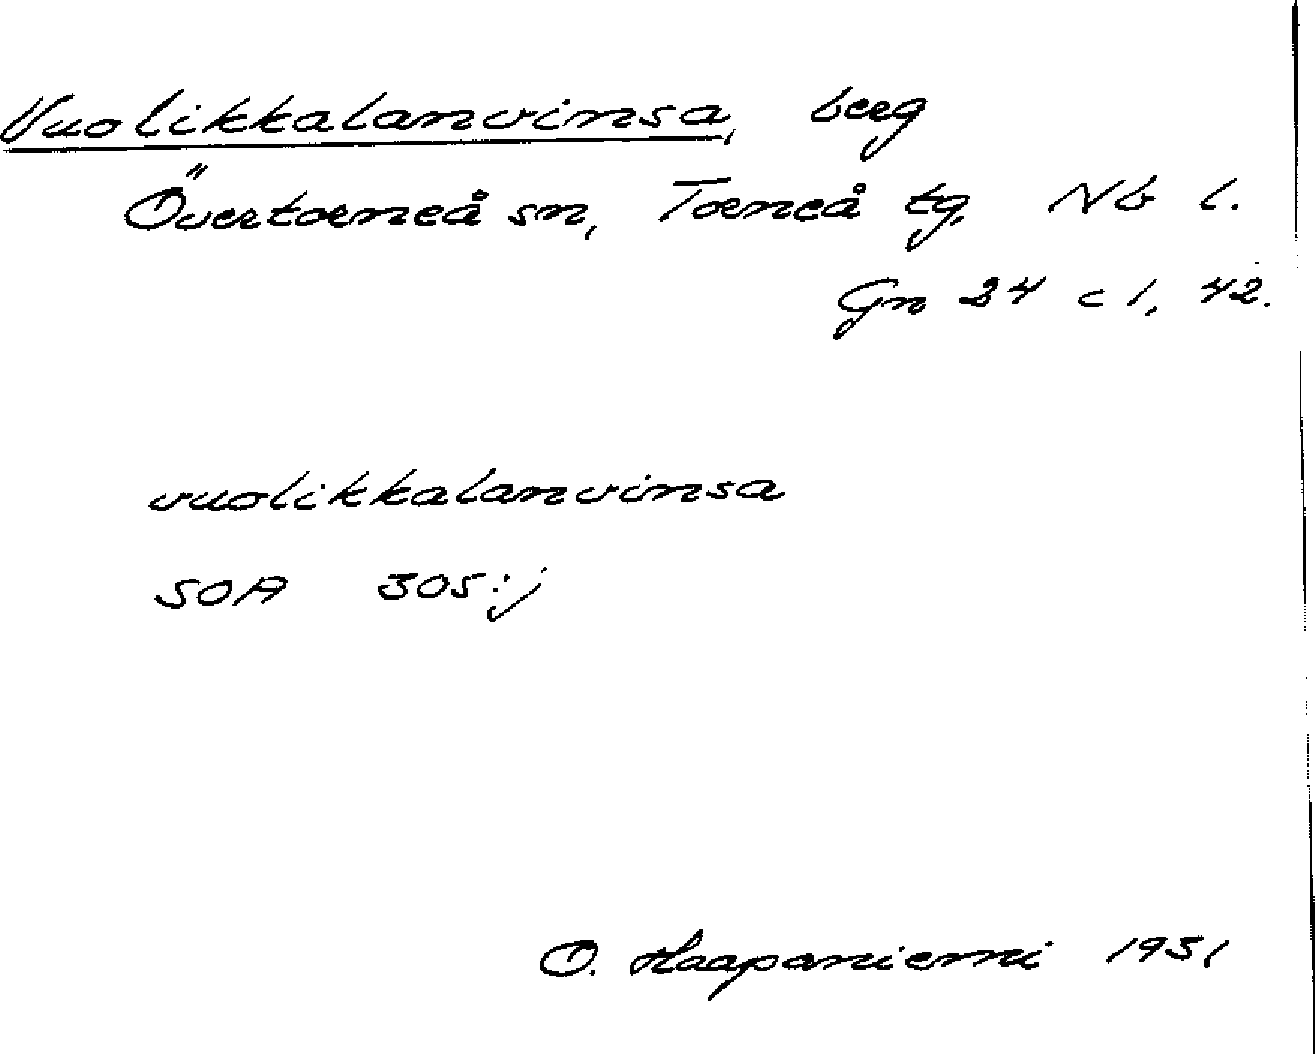 Vuolikkalanvinsa, berg
Övertorneå sn, Torneå tg, Nb l.
Gn 24 c 1, 42.
vuolikkalanvinsa
SOA 305:j
O. Haapaniemi 1951